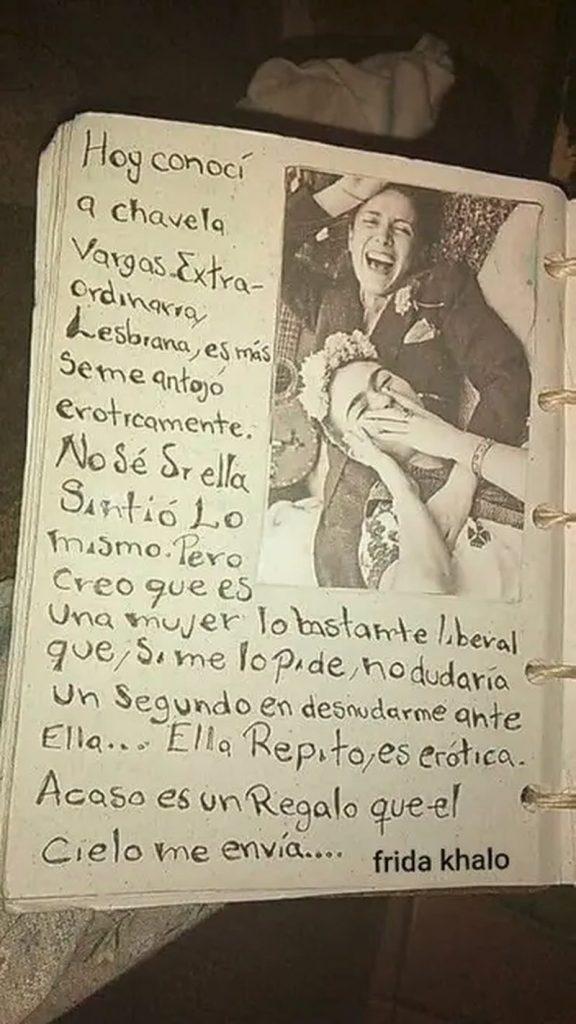 Hoy conocí
a chavela
Vargas. Extra-
ordinaria,
Lesbiana, es más
Se me antojó
eroticamente.
No Sé Si ella
Sintió Lo
mismo. Pero
Creo que es
una mujer lo bastante liberal
que, Si me lo Pide, no dudaría
un Segundo en desnudarme ante
Ella.... Ella Repito, es erótica.
Acaso es un Regalo que el
Cielo me envía....
frida khalo